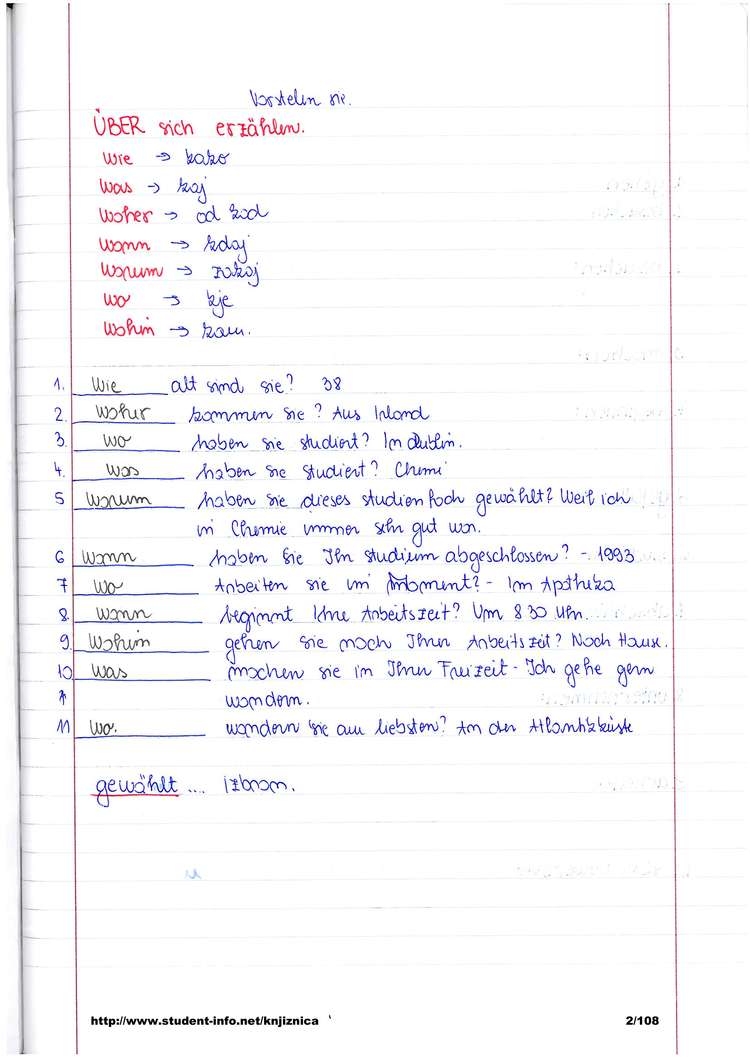 Vorstelen sie.
ÜBER sich erzählen.
wie → kako
was → kaj
woher → od kod
wann → kdaj
warum → zakaj
wo → kje
wohin → kam.
1. Wie alt sind sie? 38
2. woher kommen sie? Aus Irland
3. wo haben sie studiert? In Dublin.
4. was haben sie studiert? Chemi
5 warum haben sie dieses studienfach gewählt? Weil ich
in Chemie immer sehr gut war.
6 wann haben Sie Ihr studium abgeschlossen? - 1993
7 wo Arbeiten sie im Moment? - Im Aptheka
8. wann beginnt Ihre Arbeitszeit? Um 8 30 Uhr.
9. Wohin gehen sie nach Ihrer Arbeitszeit? Nach Hause.
10 was machen sie im Ihrer Freizeit - Ich gehe gern
wandern.
11 wo. wandern sie am liebsten? An der Atlantikküste
gewählt .... izbran.
http://www.student-info.net/knjiznica
2/108